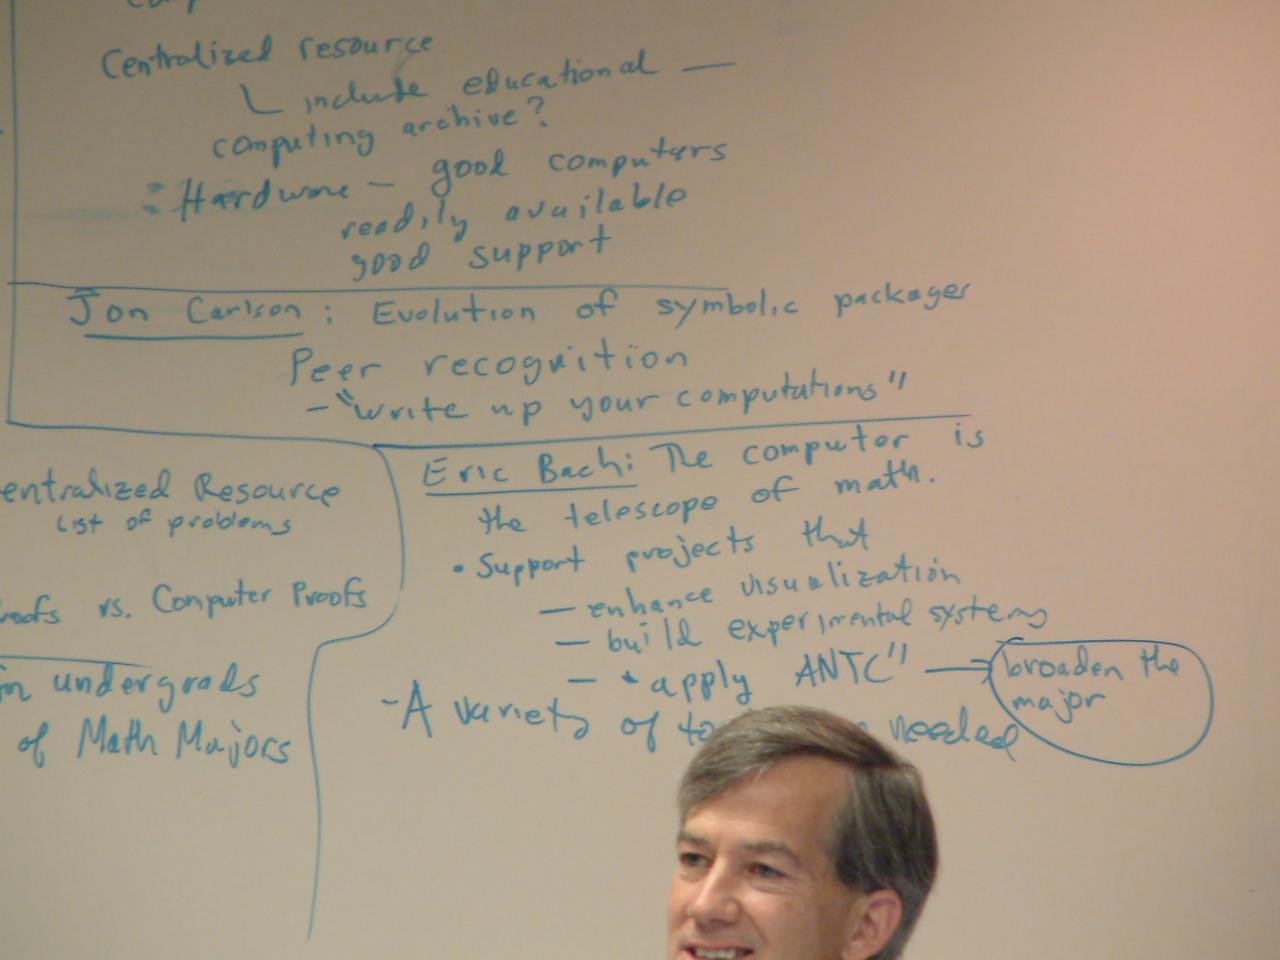 Centralized resource
include educational —
computing archive?
: Hardware — good computers
readily available
good support
Jon Carlson: Evolution of symbolic packages
Peer recognition
- "write up your computations"
entralized Resource
List of problems
roofs vs. Computer Proofs
in undergrads
of Math Majors
Eric Bach: The computer is
the telescope of math.
• Support projects that
— enhance visualization
— build experimental systems
— "apply ANTC" → broaden the
major
- A variety of to needed